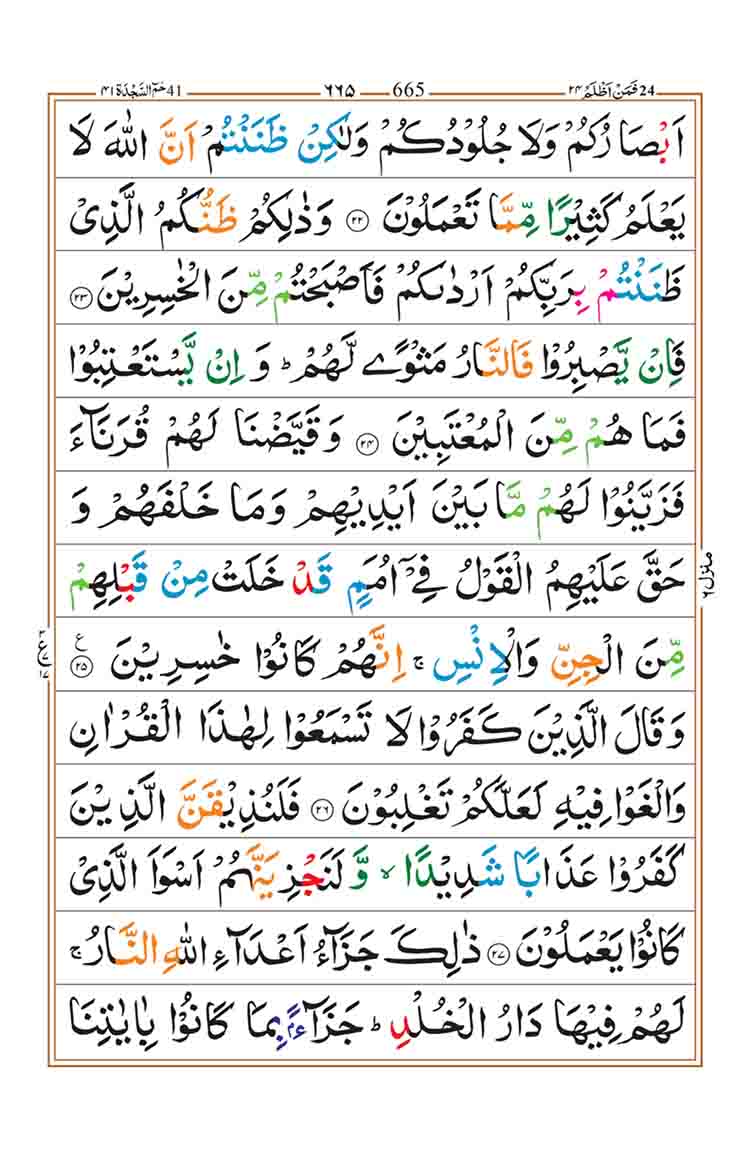 24 فَمَنْ اَظْلَمُ ۲۴ 665 ٦٦٥ 41 حٰمٓ السَّجْدَة ۴۱
اَبْصَارُكُمْ وَلَا جُلُوْدُكُمْ وَلٰكِنْ ظَنَنْتُمْ اَنَّ اللّٰهَ لَا
يَعْلَمُ كَثِيْرًا مِّمَّا تَعْمَلُوْنَ ۝۲۲ وَذٰلِكُمْ ظَنُّكُمُ الَّذِىْ
ظَنَنْتُمْ بِرَبِّكُمْ اَرْدٰىكُمْ فَاَصْبَحْتُمْ مِّنَ الْخٰسِرِيْنَ ۝۲۳
فَاِنْ يَّصْبِرُوْا فَالنَّارُ مَثْوًى لَّهُمْ ؕ وَ اِنْ يَّسْتَعْتِبُوْا
فَمَا هُمْ مِّنَ الْمُعْتَبِيْنَ ۝۲۴ وَقَيَّضْنَا لَهُمْ قُرَنَآءَ
فَزَيَّنُوْا لَهُمْ مَّا بَيْنَ اَيْدِيْهِمْ وَمَا خَلْفَهُمْ وَ
حَقَّ عَلَيْهِمُ الْقَوْلُ فِىْۤ اُمَمٍ قَدْ خَلَتْ مِنْ قَبْلِهِمْ
مِّنَ الْجِنِّ وَالْاِنْسِ ۚ اِنَّهُمْ كَانُوْا خٰسِرِيْنَ ۝۲۵ ع
وَقَالَ الَّذِيْنَ كَفَرُوْا لَا تَسْمَعُوْا لِهٰذَا الْقُرْاٰنِ
وَالْغَوْا فِيْهِ لَعَلَّكُمْ تَغْلِبُوْنَ ۝۲۶ فَلَنُذِيْقَنَّ الَّذِيْنَ
كَفَرُوْا عَذَابًا شَدِيْدًا ۙ وَّلَنَجْزِيَنَّهُمْ اَسْوَاَ الَّذِىْ
كَانُوْا يَعْمَلُوْنَ ۝۲۷ ذٰلِكَ جَزَآءُ اَعْدَآءِ اللّٰهِ النَّارُ ۚ
لَهُمْ فِيْهَا دَارُ الْخُلْدِ ؕ جَزَآءًۢ بِمَا كَانُوْا بِاٰيٰتِنَا
منزل ٦